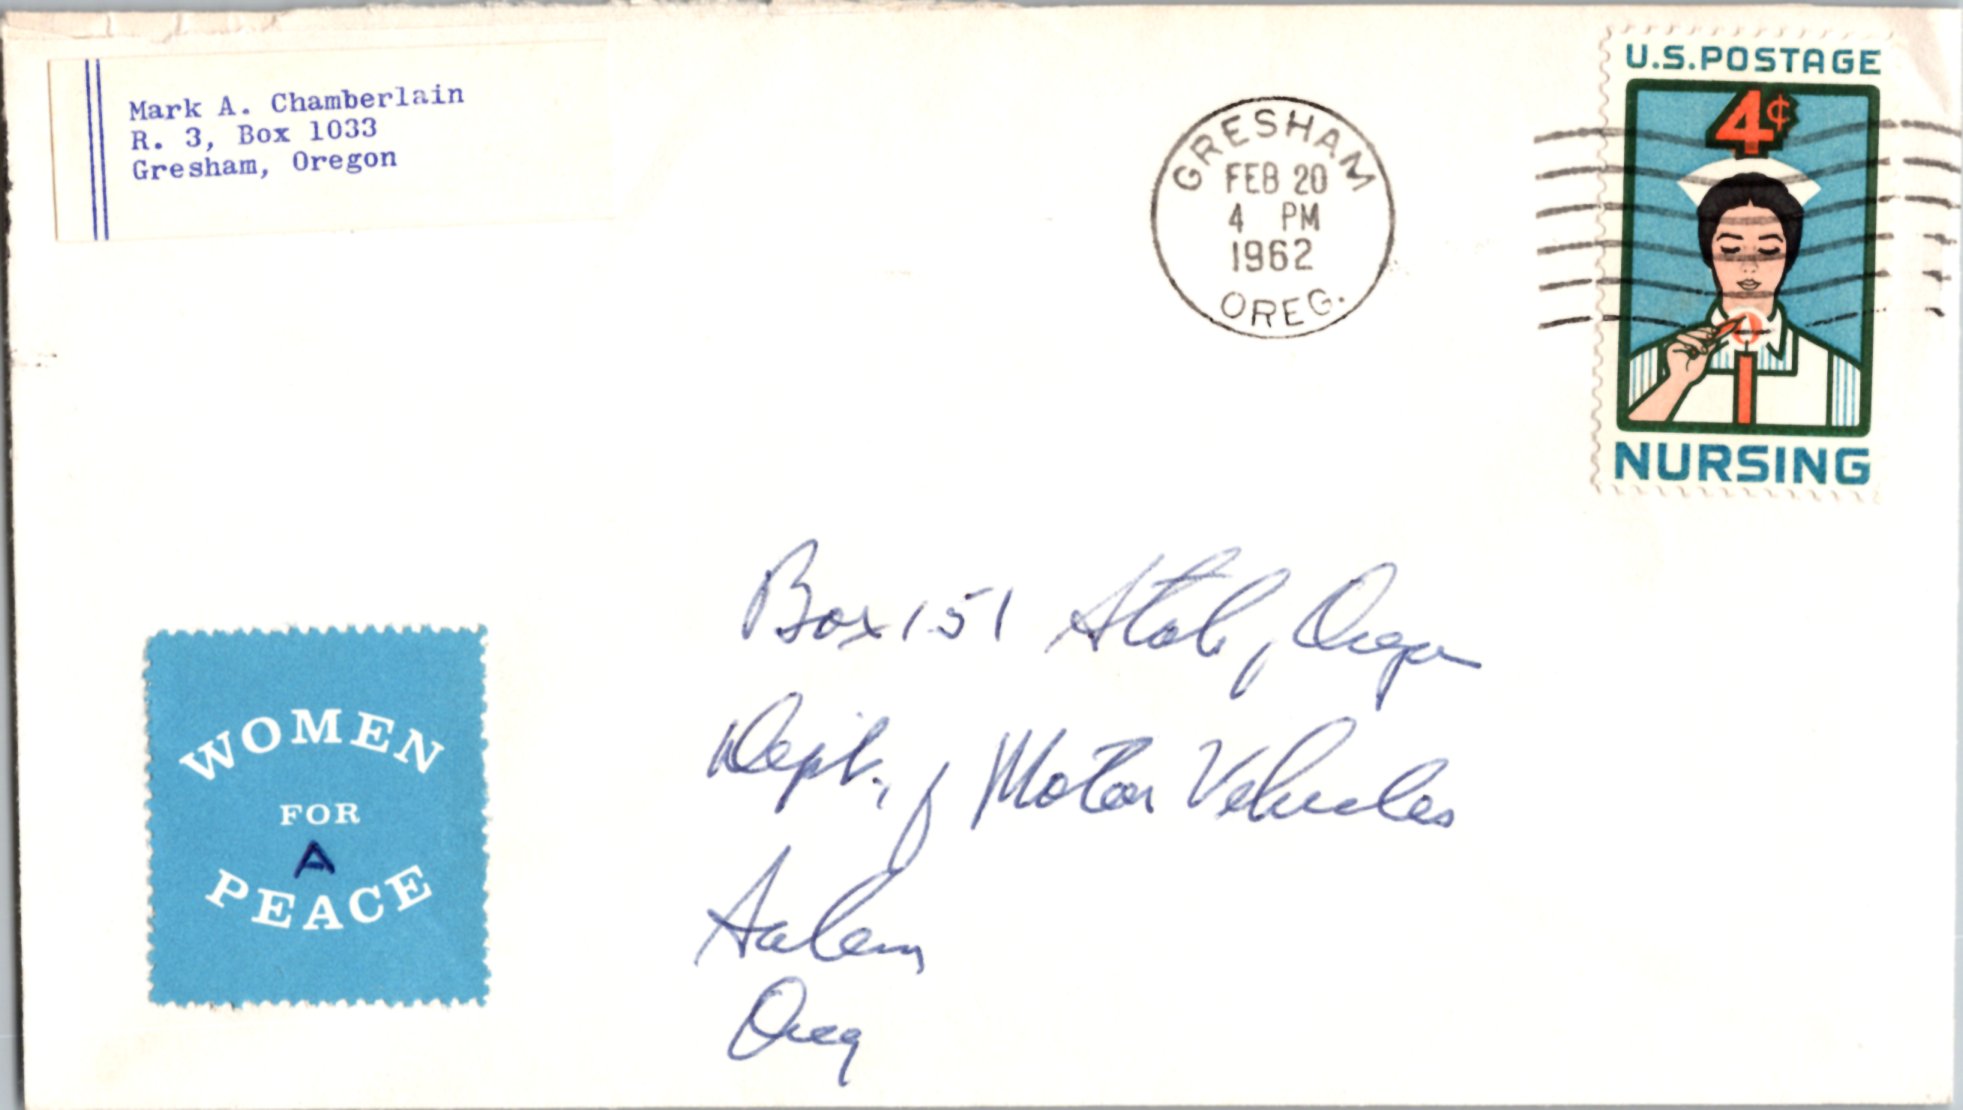 Mark A. Chamberlain
R. 3, Box 1033
Gresham, Oregon
GRESHAM
FEB 20
4 PM
1962
OREG.
U.S.POSTAGE
4¢
NURSING
Box 151 State, Oregon
Dept. of Motor Vehicles
Salem
Oreg
WOMEN
FOR
A
PEACE